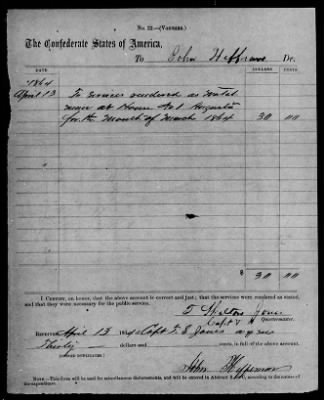 No. 22.—(VOUCHER.)
The Confederate States of America,
To John Heffernan Dr.
DATE DOLLARS CENTS
1864
April 13 To services rendered as
at House No 1 Augusta
for the month of March 1864 30 00
$ 30 00
I CERTIFY, on honor, that the above account is correct and just; that the services were rendered as stated,
and that they were necessary for the public service.
Capt &
Quartermaster.
RECEIVED April 13 1864 of Capt
Thirty — dollars and cents, in full of the above account.
(SIGNED DUPLICATES.)
John Heffernan
NOTE.—This form will be used for miscellaneous disbursements, and will be entered in Abstract according to the nature of
the expenditure.